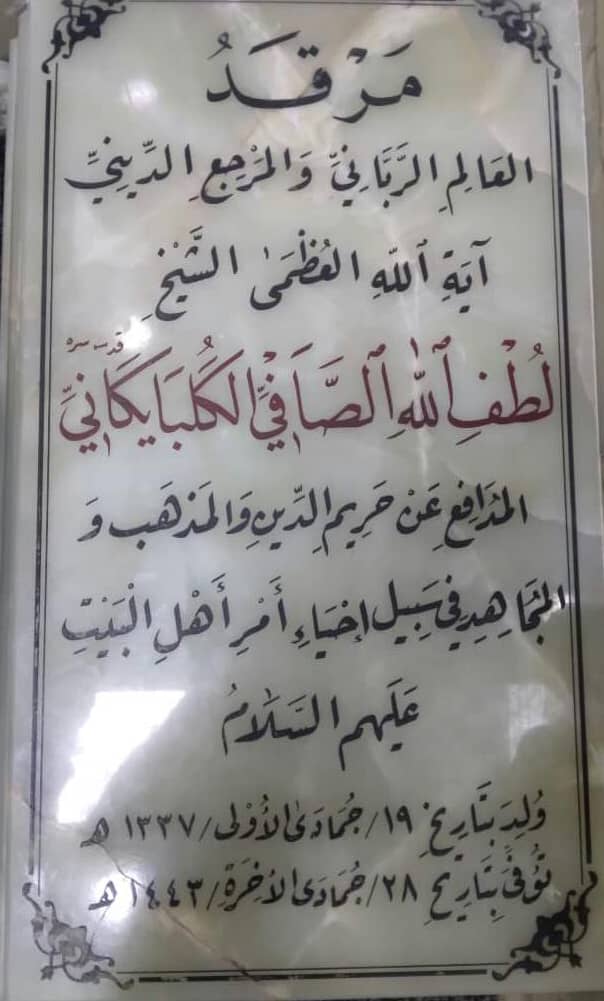 مَرْقَدُ
العَالِمِ الرَّبَّانِيِّ وَالمَرْجِعِ الدِّينِيِّ
آيَةِ ٱللهِ العُظْمَىٰ الشَّيْخِ
لُطْفِ ٱللهِ ٱلصَّافِي الكُلْبَايكَانِيِّ قدس سره
المُدَافِعِ عَنْ حَرِيمِ الدِّينِ وَالمَذْهَبِ وَ
المُجَاهِدِ فِي سَبِيلِ إِحْيَاءِ أَمْرِ أَهْلِ الْبَيْتِ
عَلَيْهِم السَّلَامُ
وُلِدَ بِتَارِيخِ ١٩/ جُمَادَىٰ الأُوْلىٰ/ ١٣٣٧ هـ
تُوُفِّيَ بِتَارِيخِ ٢٨/ جُمَادَىٰ الآخِرَةِ/ ١٤٤٣ هـ